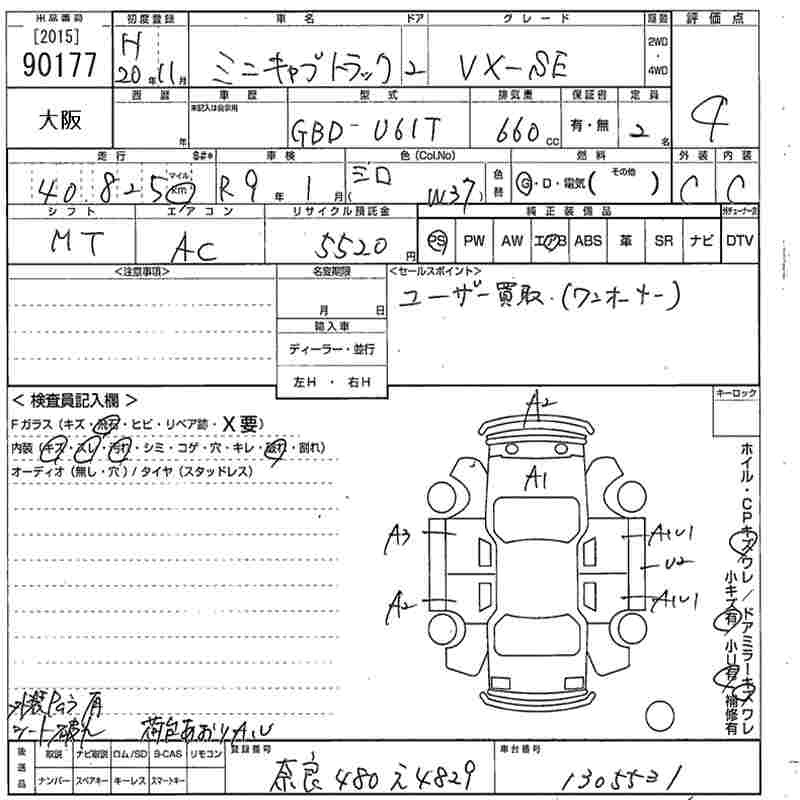 出品番号 初度登録 車名 ドア グレード 駆動 評価点
[2015] H 2WD
90177 20年 11月 ミニキャブトラック 2 VX-SE ・ 4
4WD
大阪 西暦 車歴 型式 排気量 保証書 定員
未記入は自家用
年 GBD-U61T 660cc 有・無 2名
走行 S#* 車検 色(Col.No) 燃料 外装 内装
40,825 マイル km R9年 1月 シロ (W37) 色替 G・D・電気( その他 ) C C
シフト エアコン リサイクル預託金 純正装備品
MT AC 5520円 PS PW AW エアB ABS 革 SR ナビ DTV
<注意事項> 名変期限 <セールスポイント>
月 日 ユーザー買取.(ワンオーナー)
輸入車
ディーラー・並行
左H ・ 右H
< 検査員記入欄 > キーロック
Fガラス(キズ・飛石・ヒビ・リペア跡・X要)
内装(キズ・スレ・汚れ・シミ・コゲ・穴・キレ・破れ・割れ)
オーディオ(無し・穴)/タイヤ(スタッドレス)
A2
A1
A3 A1U1
U2
A2 A1U1
ホイル・CPキズワレ/ドアミラーキズワレ
小キズ有/小U有/補修有
外装 有
シート破れ 荷台あおりA,U
後送品 取説 ナビ取説 ロム/SD B-CAS リモコン 登録番号 車台番号
ナンバー スペアキー キーレス スマートキー 奈良 480 え 4829 1305531